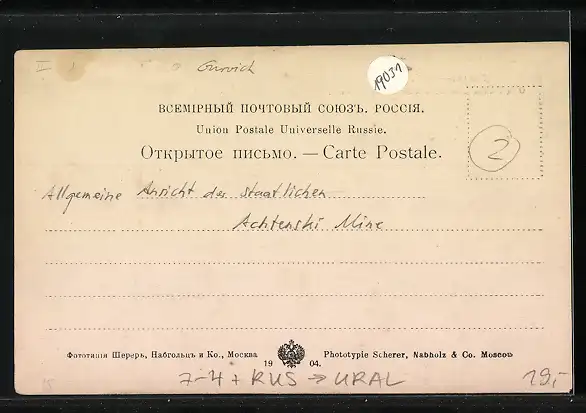 II Gurvich
19031
ВСЕМІРНЫЙ ПОЧТОВЫЙ СОЮЗЪ. РОССІЯ.
Union Postale Universelle Russie.
Открытое письмо. — Carte Postale.
2
Allgemeine Ansicht der staatlichen
Achtenski Mine
Фототипія Шереръ, Набгольцъ и Ко., Москва
1904.
Phototypie Scherer, Nabholz & Co. Moscou
7-4 + RUS → URAL
19,-